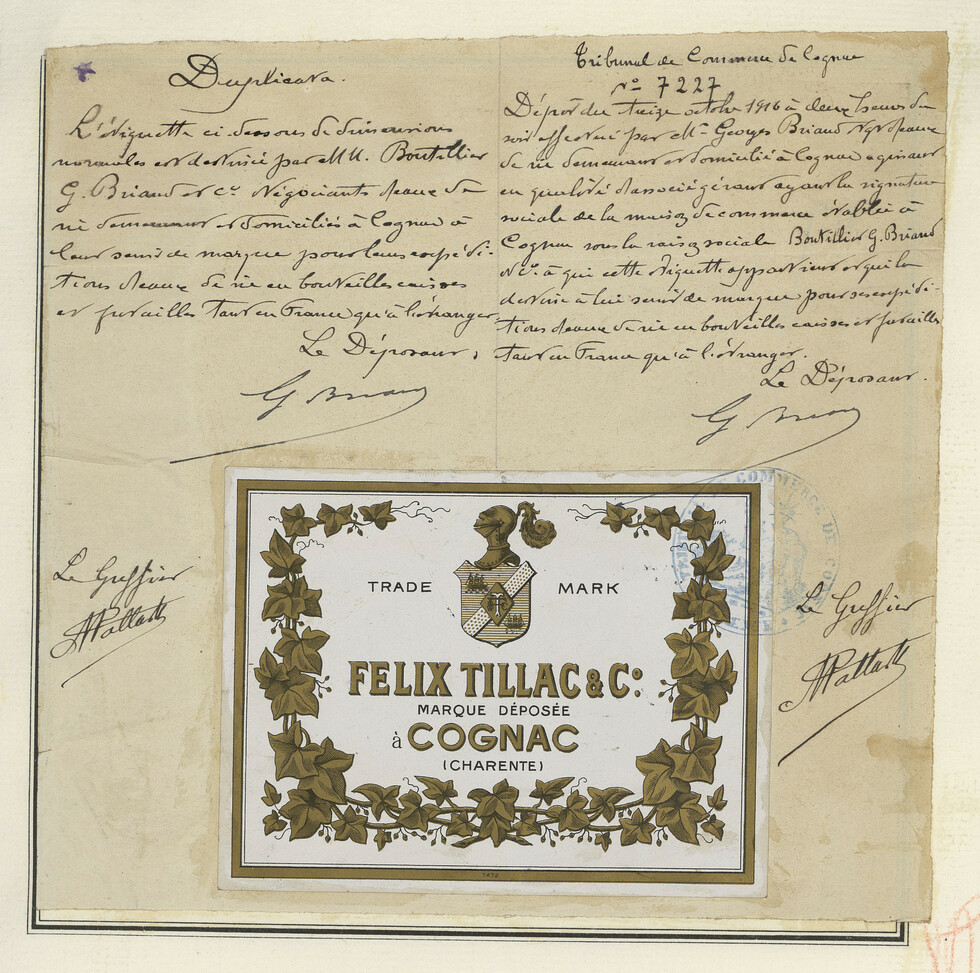 Duplicata.
L'étiquette ci-dessous de dimensions
normales est destinée par MM. Boutillier
G. Briand et Cie Négociants d'eaux de
vie demeurant et domiciliés à Cognac à
leur servir de marque pour leurs expédi-
tions d'eaux de vie en bouteilles caisses
et futailles tant en France qu'à l'étranger.
Le Déposant,
G Briand
Tribunal de Commerce de Cognac
No 7227
Dépôt du treize octobre 1916 à deux heures du
soir effectué par Mr Georges Briand Ngt d'eaux
de vie demeurant et domicilié à Cognac agissant
en qualité d'associé gérant ayant la signature
sociale de la maison de commerce établie à
Cognac sous la raison sociale Boutillier G. Briand
& Cie à qui cette étiquette appartient et qui la
destine à lui servir de marque pour ses expédi-
tions d'eaux de vie en bouteilles caisses et futailles
tant en France qu'à l'étranger.
Le Déposant.
G Briand
Le Greffier
Le Greffier
TRADE MARK
FELIX TILLAC & Co:
MARQUE DÉPOSÉE
à COGNAC
(CHARENTE)
COMMERCE DE